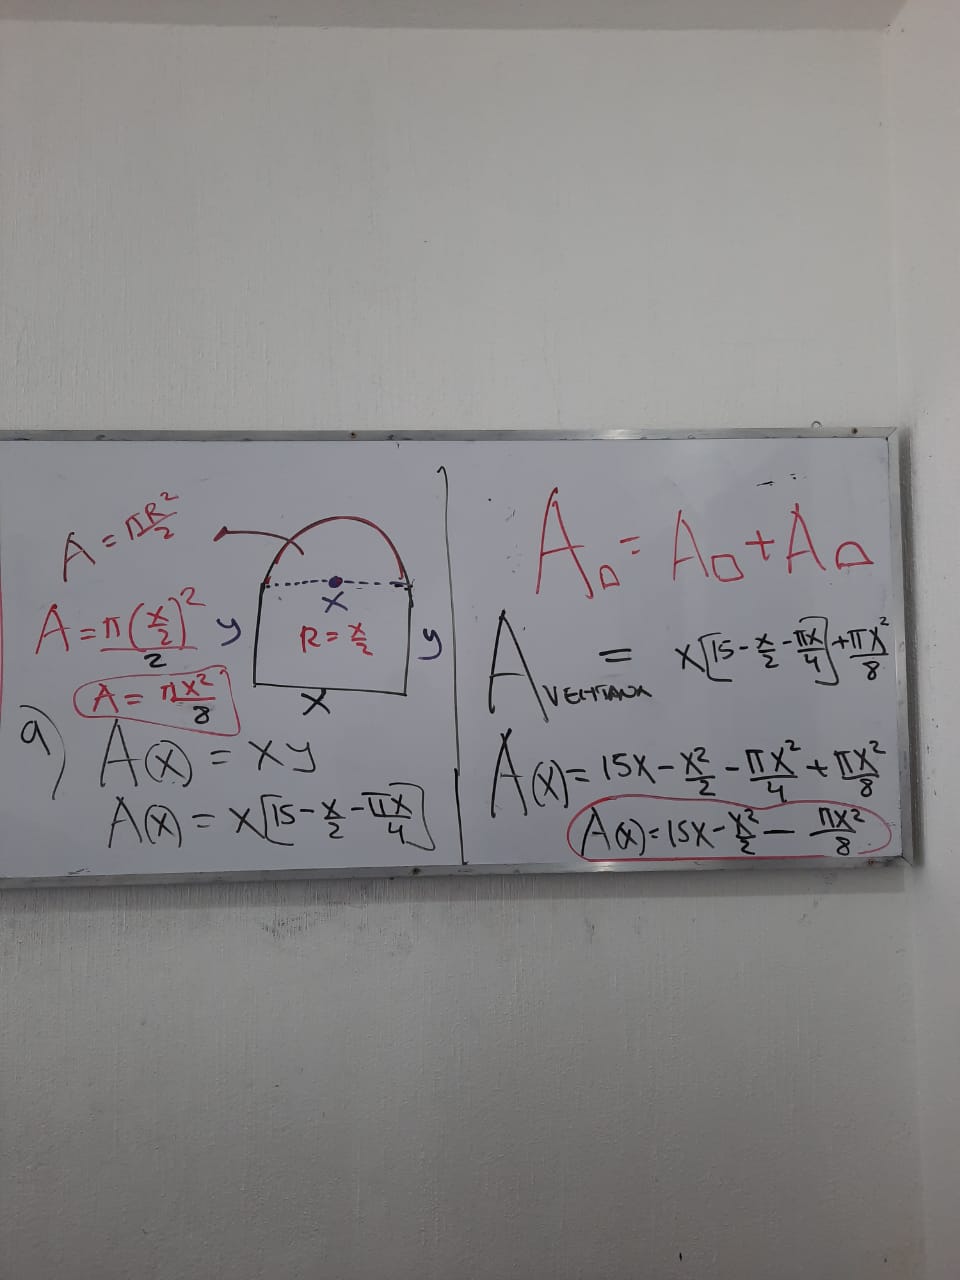 A = πR²/2
A = π(x/2)²/2
A = πx²/8
x
y
y
R = x/2
x
a) A(x) = xy
A(x) = x[15 - x/2 - πx/4]
A⌓ = A□ + A⌓
A VENTANA = x[15 - x/2 - πx/4] + πx²/8
A(x) = 15x - x²/2 - πx²/4 + πx²/8
A(x) = 15x - x²/2 - πx²/8